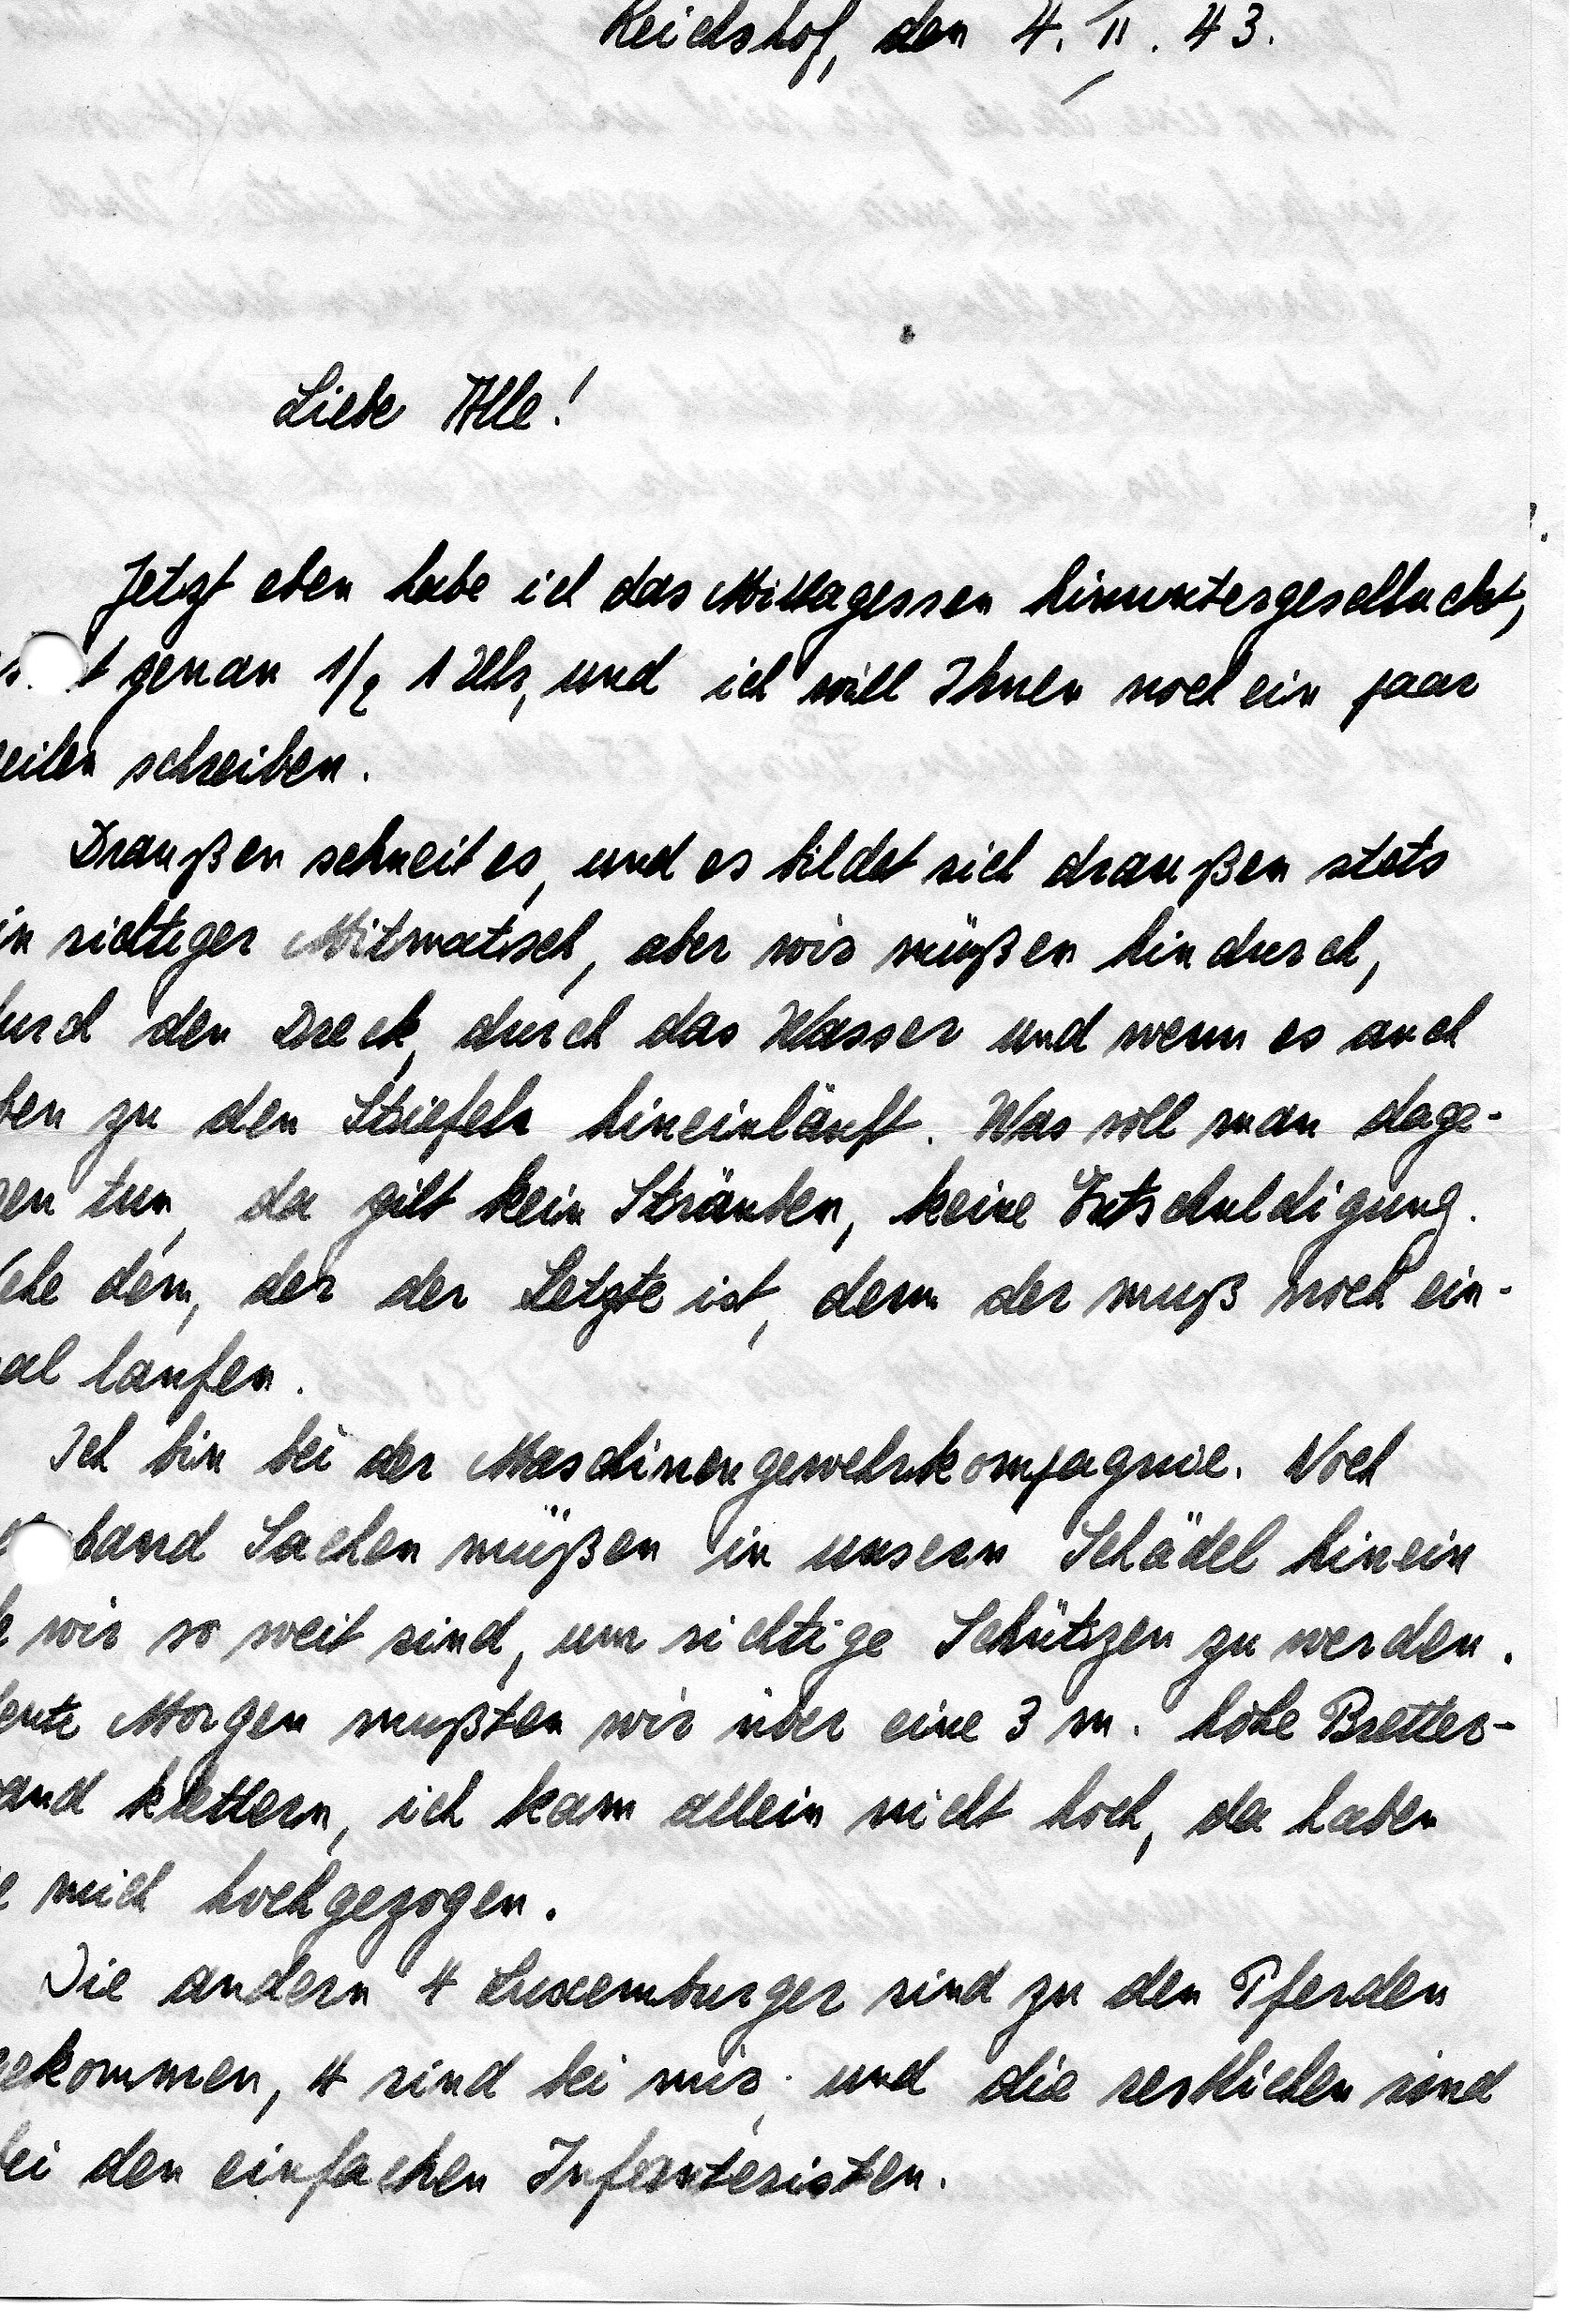 Reichshof, den 4. II. 43.
Liebe Alle!
Jetzt eben habe ich das Mittagessen hinuntergeschluckt,
t genau 1/2 1 Uhr, und ich will Ihnen noch ein paar
eilen schreiben.
Draußen schneit es, und es bildet sich draußen stets
in richtiger Mitmatsch, aber wir müßen hindurch,
urch den Dreck, durch das Wasser und wenn es auch
ben zu den Stiefeln hineinläuft. Was soll man dage-
gen tun, da gilt kein Sträuben, keine Entschuldigung.
ehe dem, der der Letzte ist, denn der muß noch ein-
al laufen.
Ich bin bei der Maschinengewehrkompagnie. Noch
hand Sachen müßen in unsern Schädel hinein
e wir so weit sind, um richtige Schützen zu werden.
eute Morgen mußten wir über eine 3 m. hohe Bretter-
and klettern, ich kam allein nicht hoch, da haben
e mich hochgezogen.
Die andern 4 Luxemburger sind zu den Pferden
gekommen, 4 sind bei mir, und die restlichen sind
bei den einfachen Infanteristen.